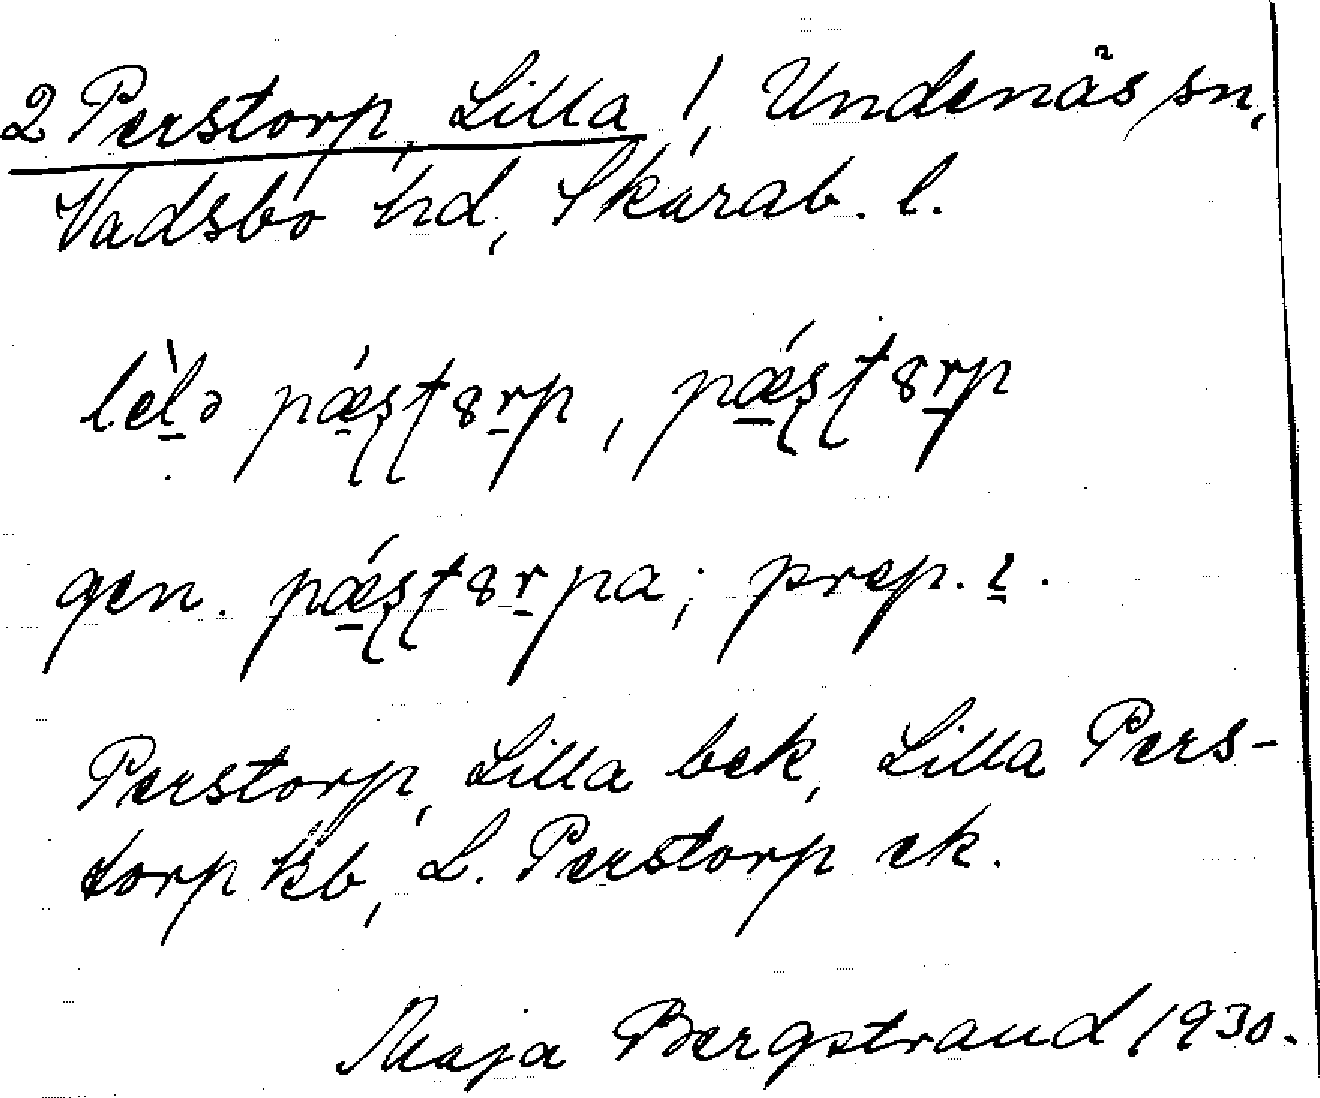 2 Perstorp, Lilla !, Undenäs sn,
Vadsbo hd, Skarab. l.
lèlə pǽʂʈ8rp, pǽʂʈ8rp
gen. pǽʂʈ8rpa; prep. ı.
Perstorp, Lilla bek, Lilla Pers-
torp kb, L. Perstorp ek.
Maja Bergstrand 1930.